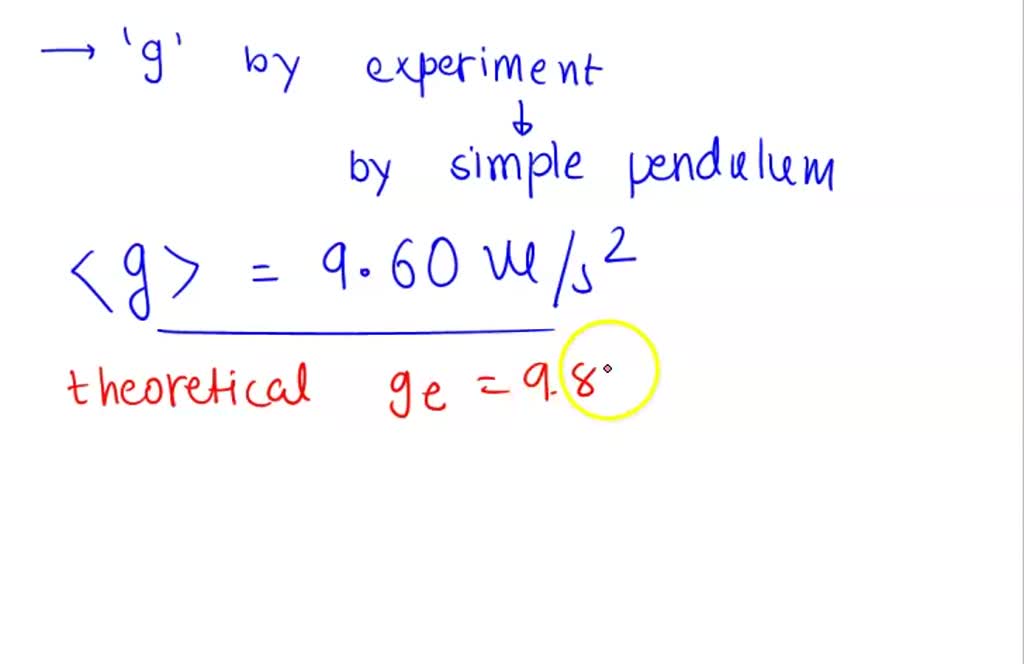 → 'g' by experiment
↓
by simple pendulum
<g> = 9.60 m/s²
theoretical ge = 9.8